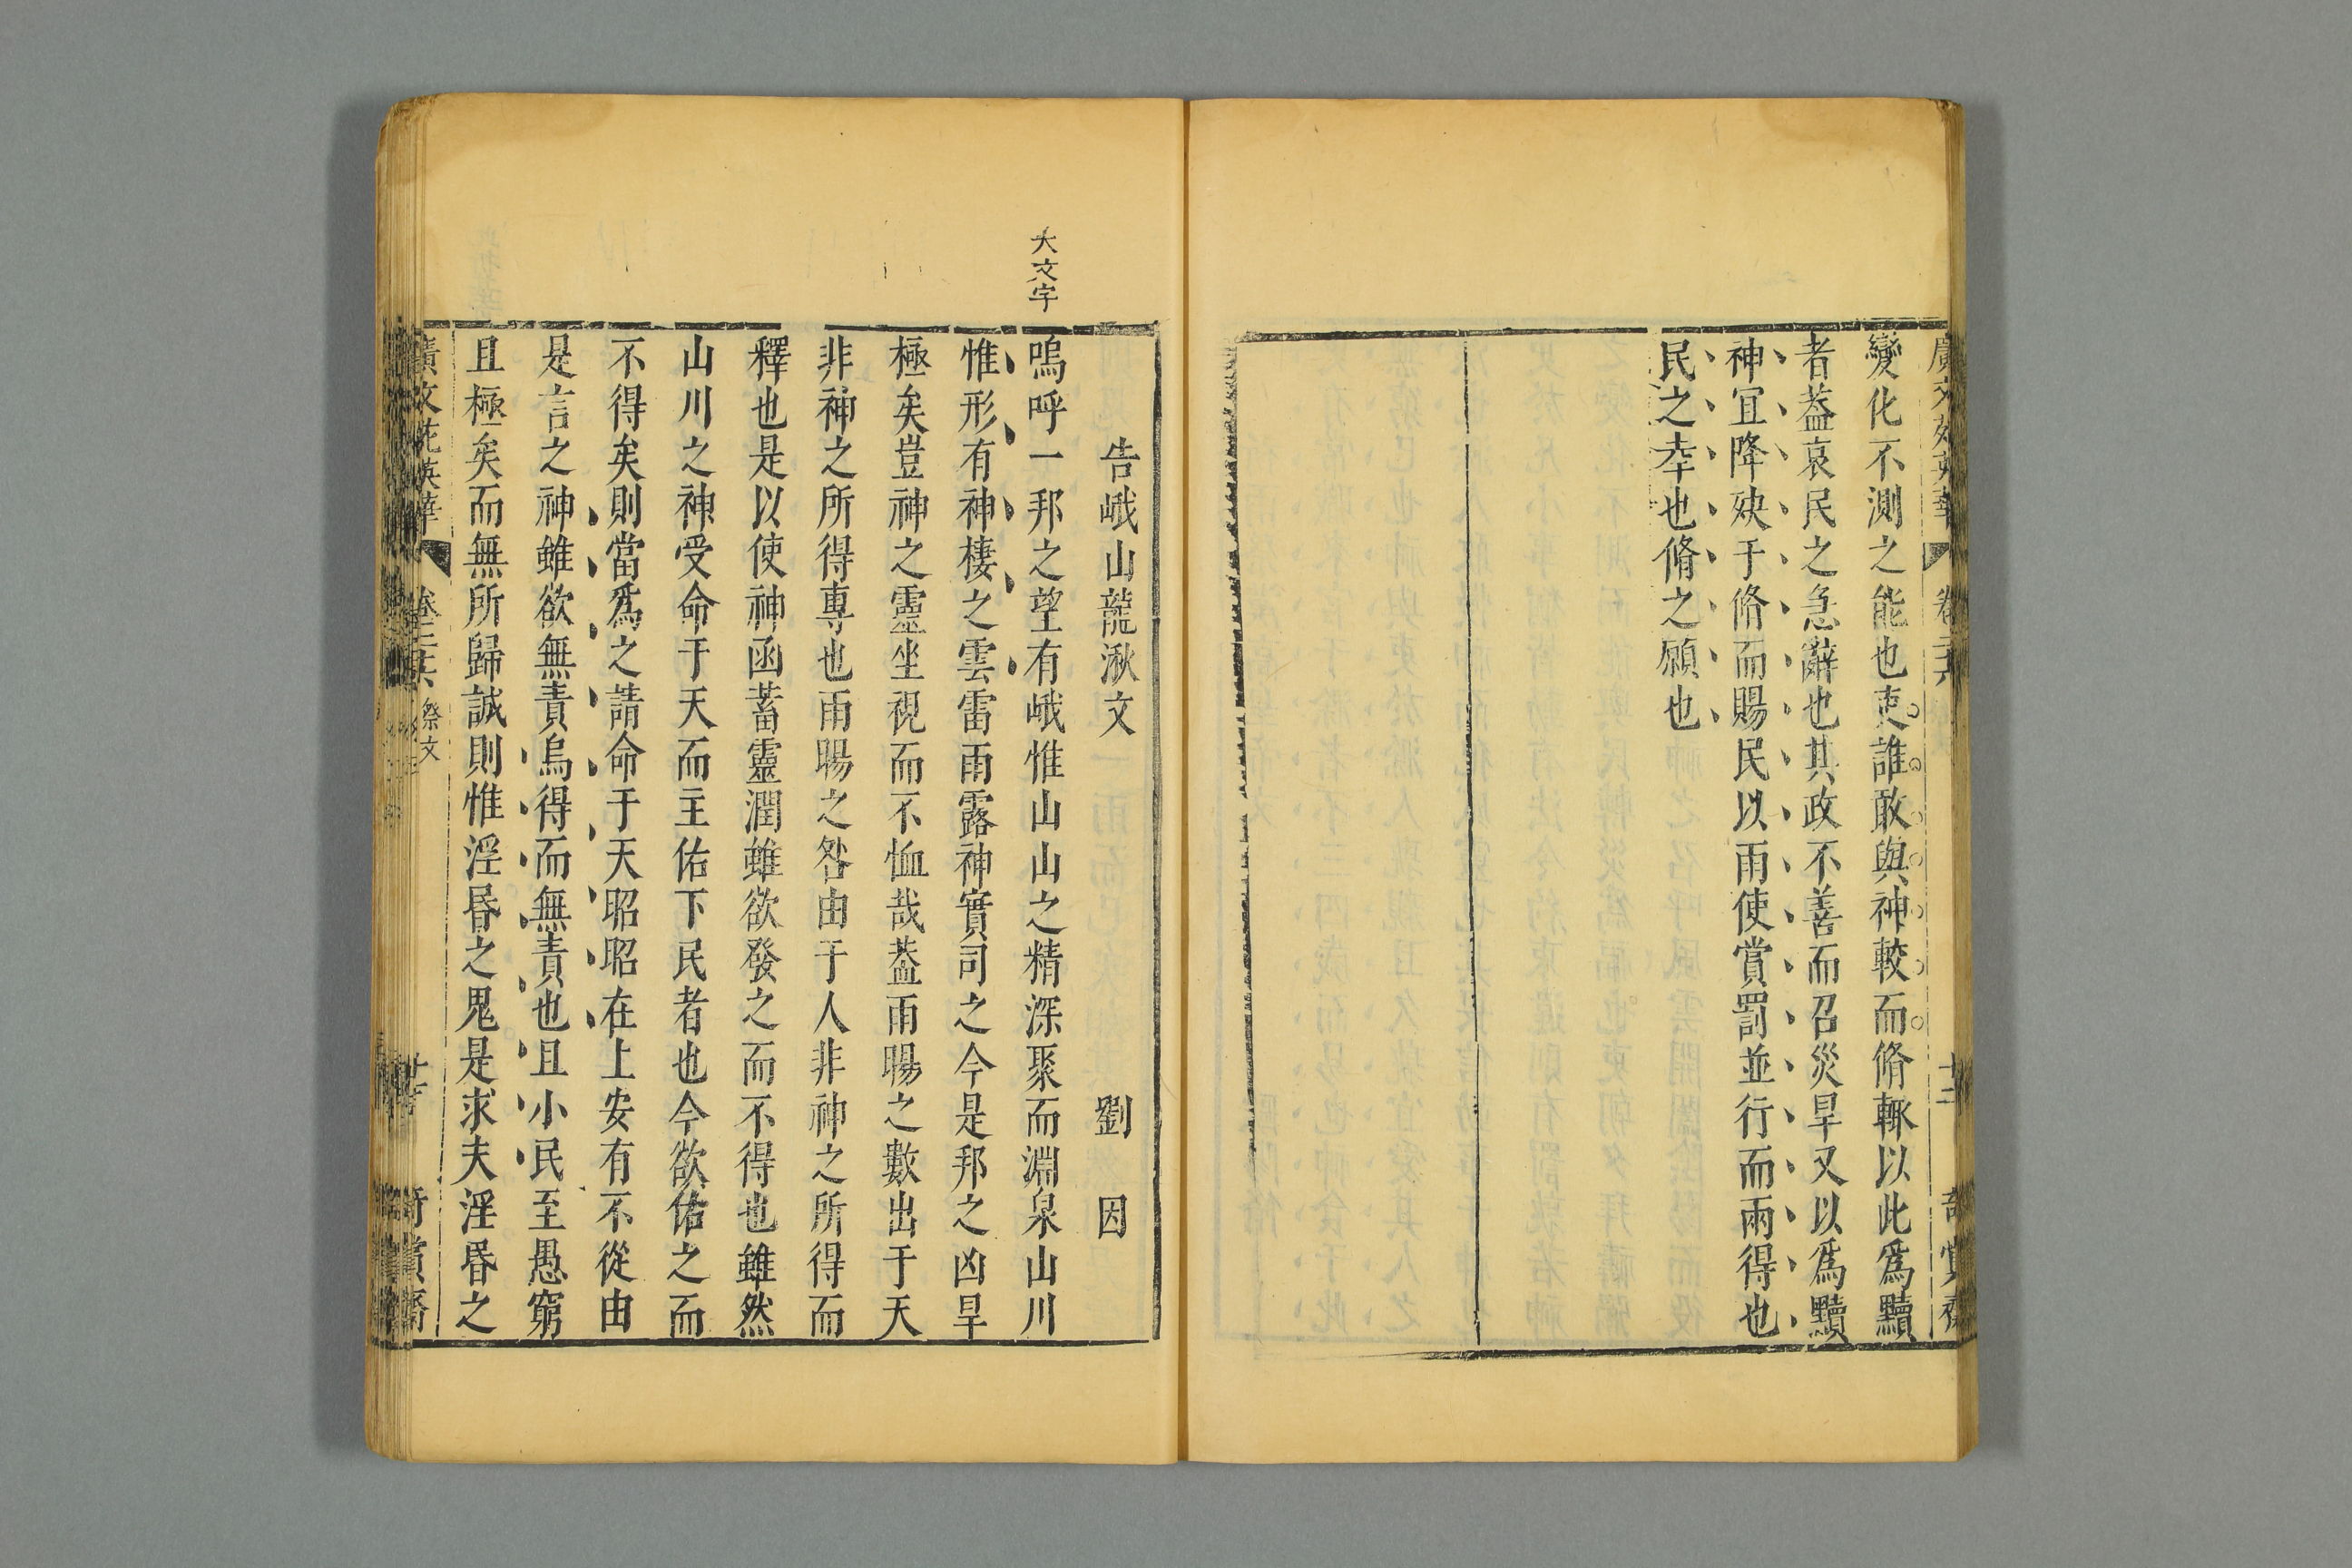 廣文苑英華 卷二十六 十二 奇賞齋
變化不測之能也吏誰敢與神較而脩輙以此爲黷
者葢哀民之急辭也其政不善而召災旱又以爲黷
神冝降殃于脩而賜民以雨使賞罰並行而兩得也
民之幸也脩之願也
大文字
告峨山龍湫文 劉因
嗚呼一邦之望有峨惟山山之精深聚而淵泉山川
惟形有神棲之雲雷雨露神實司之今是邦之凶旱
極矣豈神之靈坐視而不恤哉葢雨暘之數出于天
非神之所得專也雨暘之咎由于人非神之所得而
釋也是以使神函蓄靈潤雖欲發之而不得也雖然
山川之神受命于天而主佑下民者也今欲佑之而
不得矣則當爲之請命于天昭昭在上安有不從由
是言之神雖欲無責烏得而無責也且小民至愚窮
且極矣而無所歸誠則惟淫昬之鬼是求夫淫昬之
廣文苑英華 卷二十六 祭文 奇賞齋